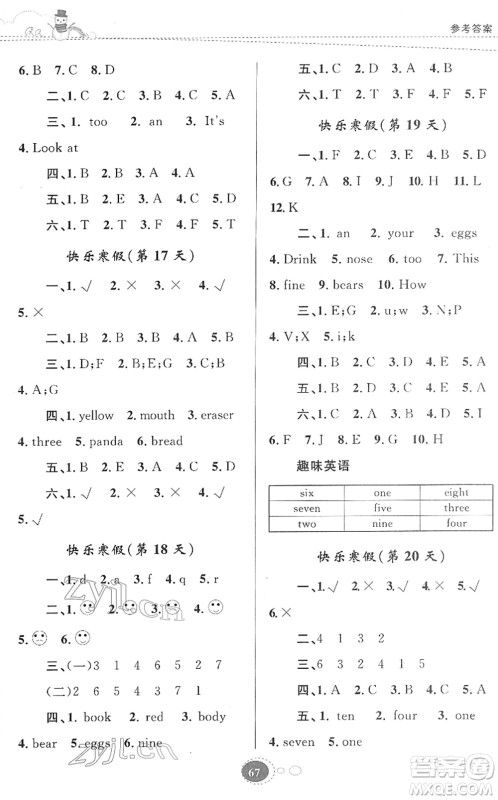 参考答案
6. B 7. C 8. D
二、1. A 2. B 3. C 4. C 5. A
三、1. too 2. an 3. It's
4. Look at
四、1. B 2. A 3. B 4. A 5. A
五、1. B 2. E 3. A 4. D 5. C
六、1. T 2. T 3. F 4. F 5. T
快乐寒假(第 17 天)
一、1. √ 2. × 3. × 4. √
5. ×
二、1. B 2. B 3. A 4. B 5. B
三、1. D;F 2. E;B 3. H;C
4. A;G
四、1. yellow 2. mouth 3. eraser
4. three 5. panda 6. bread
五、1. A 2. A 3. B 4. B 5. A
六、1. √ 2. × 3. × 4. √
5. √
快乐寒假(第 18 天)
一、1. d 2. a 3. f 4. q 5. r
二、1. 2. 3. 4.
5. 6.
三、(一)3 1 4 6 5 2 7
(二)2 6 5 7 1 3 4
四、1. book 2. red 3. body
4. bear 5. eggs 6. nine
五、1. C 2. D 3. A 4. B 5. E
六、1. F 2. T 3. T 4. F 5. F
快乐寒假(第 19 天)
一、1. F 2. B 3. C 4. D 5. E
6. G 7. A 8. J 9. H 10. I 11. L
12. K
二、1. an 2. your 3. eggs
4. Drink 5. nose 6. too 7. This
8. fine 9. bears 10. How
三、1. E;G 2. u;w 3. F;M
4. V;X 5. i;k
四、1. B 2. C 3. A 4. E 5. D
五、1. I 2. B 3. A 4. D 5. C
6. F 7. J 8. E 9. G 10. H
趣味英语
six one eight
seven five three
two nine four
快乐寒假(第 20 天)
一、1. √ 2. × 3. √ 4. × 5. √
6. ×
二、4 1 3 2 6 5
三、1. B 2. A 3. A 4. B 5. B
四、1. A 2. D 3. C 4. B 5. E
五、1. ten 2. four 3. eggs
4. seven 5. one
67
zyjl.cn
zyjl.cn
答案圈
MXQE.COM